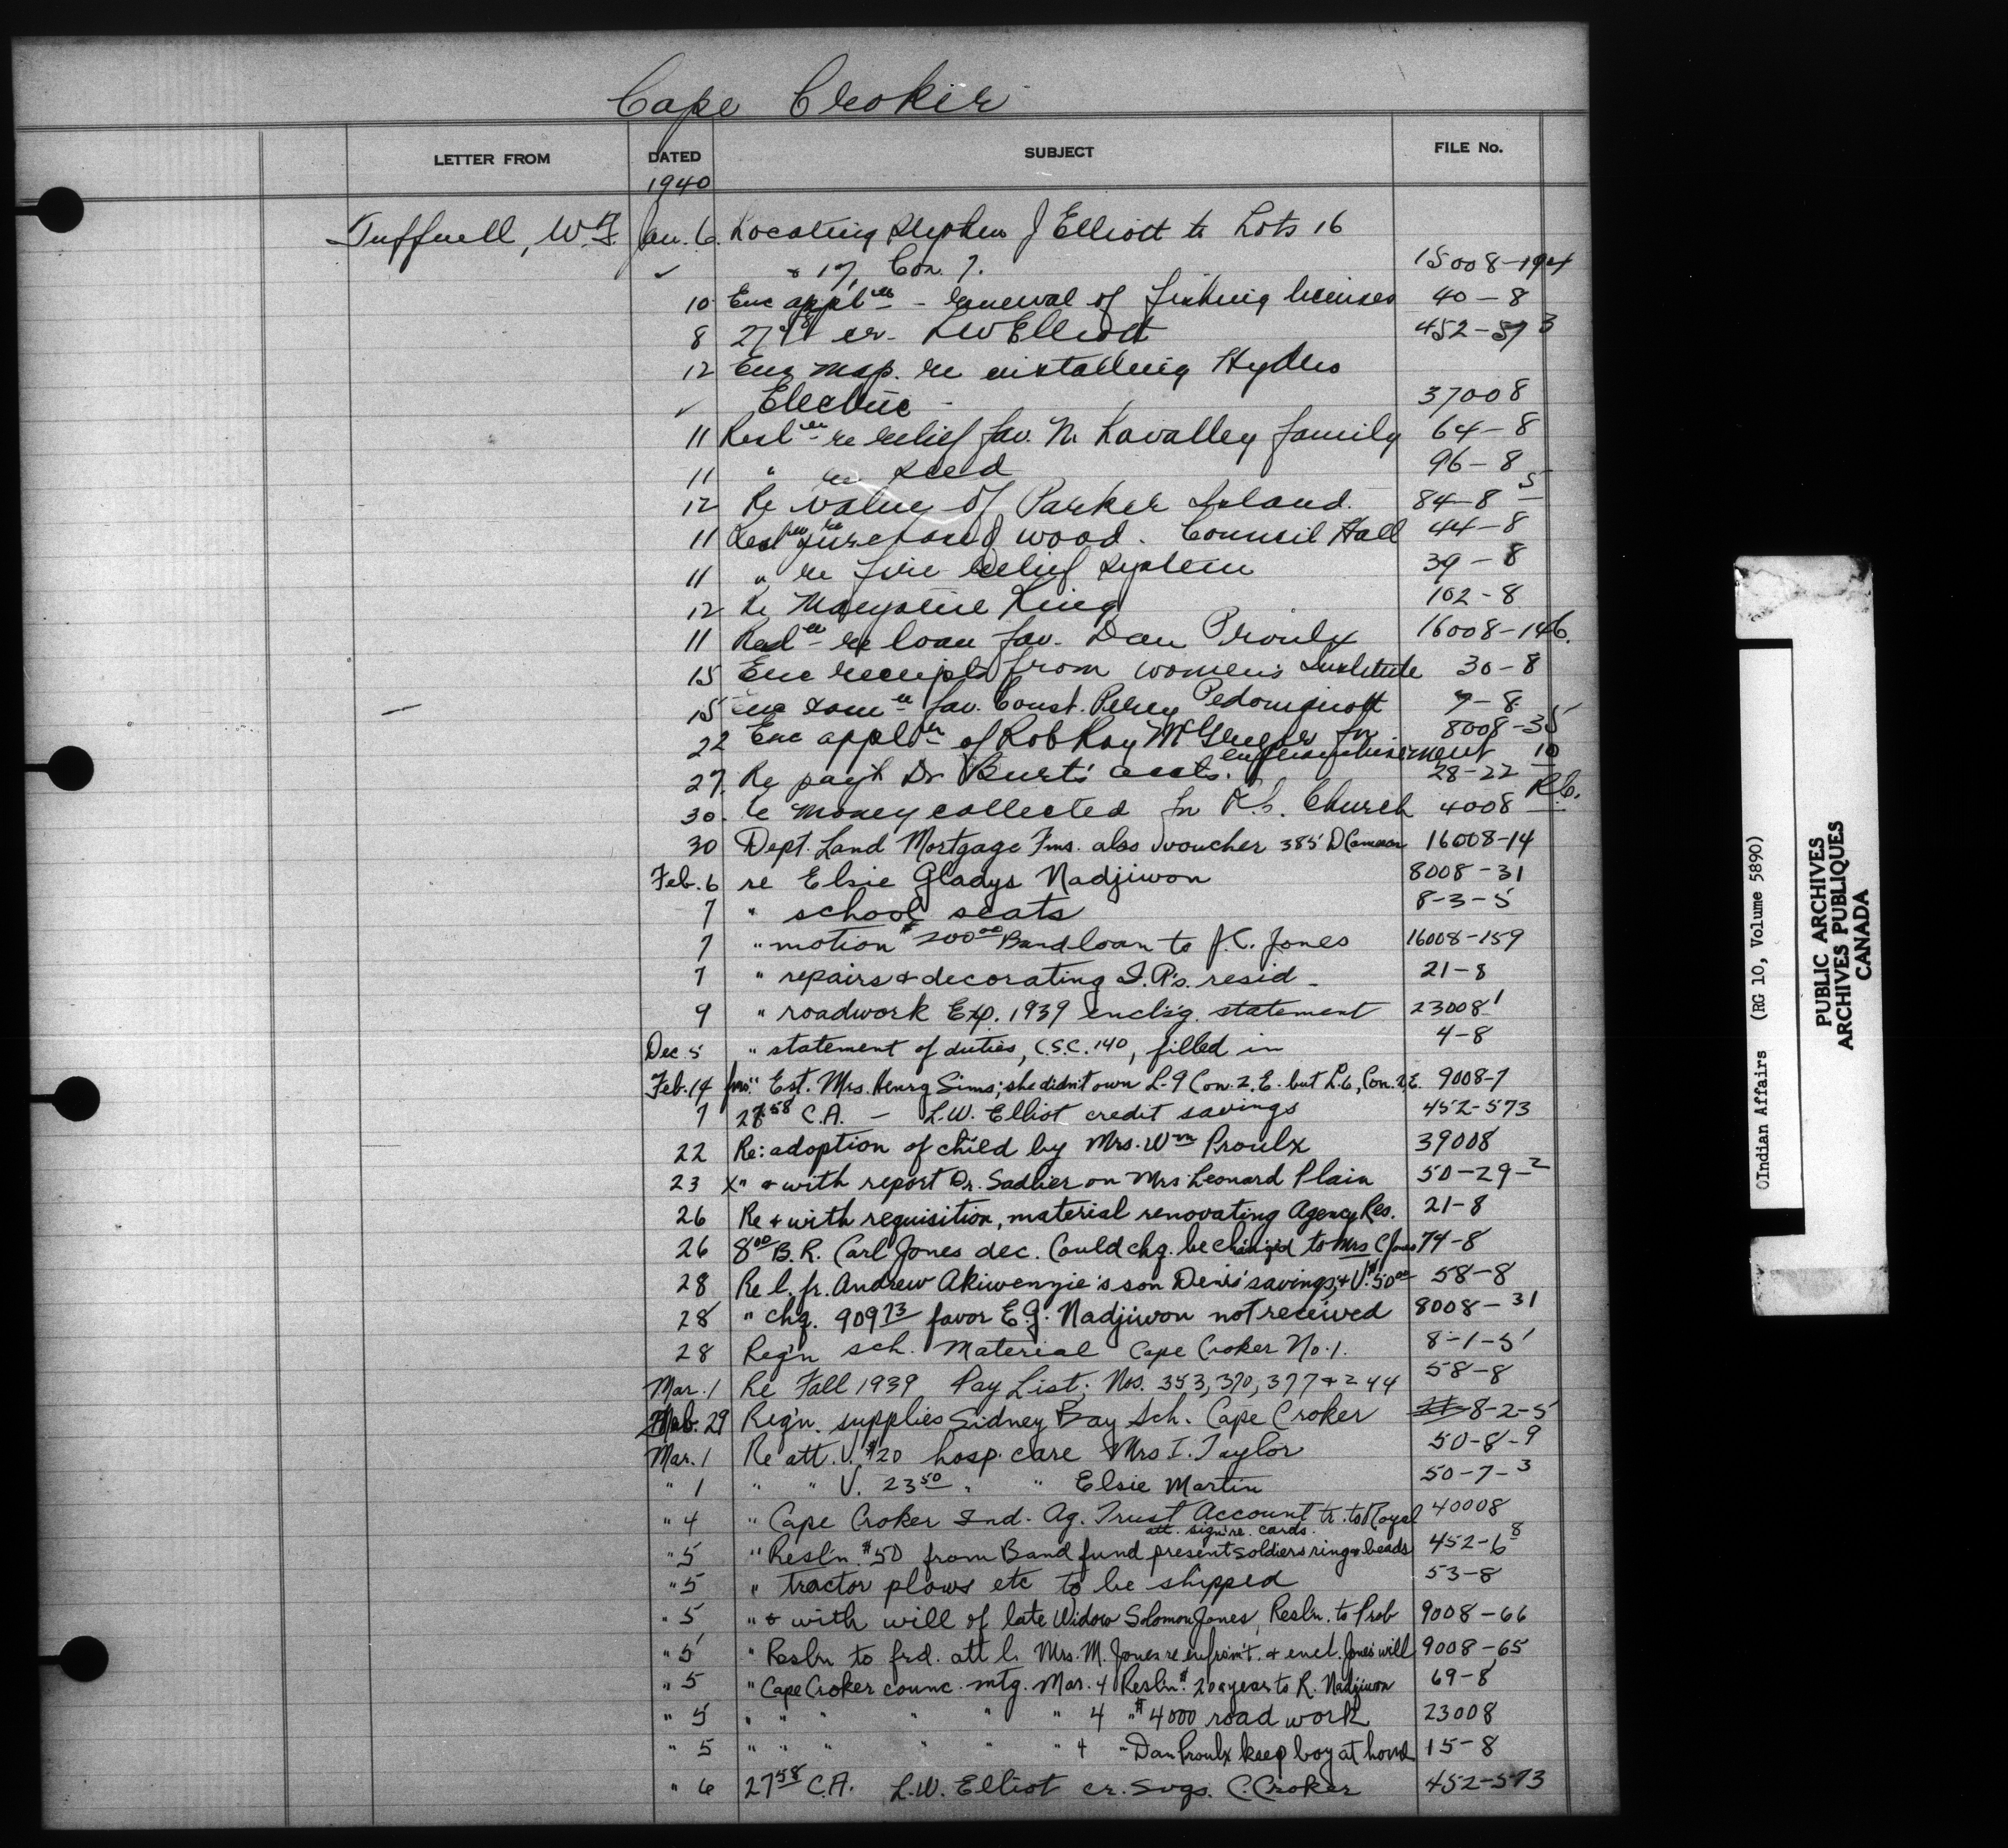 Cape Croker
LETTER FROM DATED SUBJECT FILE No.
1940
Tuffnell, W.F. Jan. 6. Locating Stephen J Elliott to Lots 16
✓ & 17, Con. 7. 15008-194
10 Enc applns - renewal of fishing licenses 40-8
8 27.58 cr. L W Elliott 452-573
12 Enc map. re installing Hydro
✓ Electric - 37008
11 Resln re relief fav. N. Lavalley family 64-8
11 " re seed 96-8
12 Re value of Parker Island. 84-8 5
11 Resln re purchase of wood. Council Hall 44-8
11 " re fire relief system 39-8
12 Re King 102-8
11 Resln re loan fav. Dan Proulx 16008-146.
15 Enc receipts from women's Institute 30-8
15 Enc fav. Const. Percy Pedoniquott 7-8
22 Enc appln of Rob Roy McGregor for 8008-35
enfranchisement 10
27. Re pay't Dr Burt's accts. 28-22
30. Re money collected for R.C. Church 4008 R.C.
30 Dept. Land Mortgage Fms. also voucher 385 D Cameron 16008-14
Feb. 6 re Elsie Gladys Nadjiwon 8008-31
7 " school seats 8-3-5
7 " motion $200.00 Band loan to J.C. Jones 16008-159
7 " repairs & decorating I.A's. resid - 21-8
9 " roadwork Exp. 1939 encls'g. statement 23008 1
Dec. 5 " statement of duties, C.S.C. 140, filled in 4-8
Feb. 14 " Est. Mrs. Henry Sims; she didn't own L-9 Con. 2, E. but L.6, Con. 2, E. 9008-7
7 27.58 C.A. - L.W. Elliot credit savings 452-573
22 Re: adoption of child by Mrs. Wm Proulx 39008
23 X" & with report Dr. Sadlier on Mrs Leonard Plain 50-29-2
26 Re & with requisition, material renovating Agency Res. 21-8
26 8.00 B.R. Carl Jones dec. Could chq. be changed to Mrs C Jones 74-8
28 Re l. fr. Andrew Akiwenzie's son Denis' savings, & V. $50.00 58-8
28 " chq. 909.73 favor E.G. Nadjiwon not received 8008-31
28 Req'n sch. Material Cape Croker No. 1. 8-1-5
Mar. 1 Re Fall 1939 Pay List; Nos. 353, 370, 377 & 244 58-8
Feb. 29 Req'n. supplies Sidney Bay Sch. Cape Croker 8-2-5
Mar. 1 Re att. V. $20 hosp. care Mrs I. Taylor 50-8-9
" 1 " " V. 23.50 " " Elsie Martin 50-7-3
" 4 " Cape Croker Ind. Ag. Trust Account tr. to Royal 40008
att. sign're. cards.
" 5 " Resl'n. $50 from Band fund present soldiers ring & beads 452-6 8
" 5 " tractor plows etc to be shipped 53-8
" 5 " & with will of late Widow Solomon Jones, Resln. to Prob 9008-66
" 5 " Resln to frd. att l. Mrs. M. Jones re enfran't. & encl. Jones' will 9008-65
" 5 " Cape Croker counc. mtg. Mar. 4 Resln. $20 a year to R. Nadjiwon 69-8
" 5 " " " " " " 4 " $4000 road work 23008
" 5 " " " " " " 4 " Dan Proulx keep boy at home 15-8
" 6 27.58 C.A. L.W. Elliot cr. svgs. C. Croker 452-573
©Indian Affairs (RG 10, Volume 5890)
PUBLIC ARCHIVES
ARCHIVES PUBLIQUES
CANADA